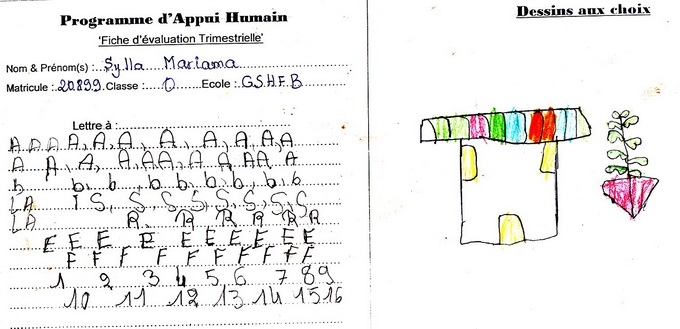 Programme d'Appui Humain
'Fiche d'évaluation Trimestrielle'
Nom & Prénom(s) :..Sylla Mariama
Matricule :.20899.Classe :.....0.....Ecole :.GSHFB
Lettre à :
A A A A, A, A, A, A, A, A, A
A A, A, A, AA, A A AA A
b b, b, b, b, b, b, b, b
LA I S, S, S, S, S, S, S
LA R R R R R R
E E E E E E E E E E
F F F F F F F F F
1 2 3 4 5 6 7 8 9
10 11 12 13 14 15 16
Dessins aux choix